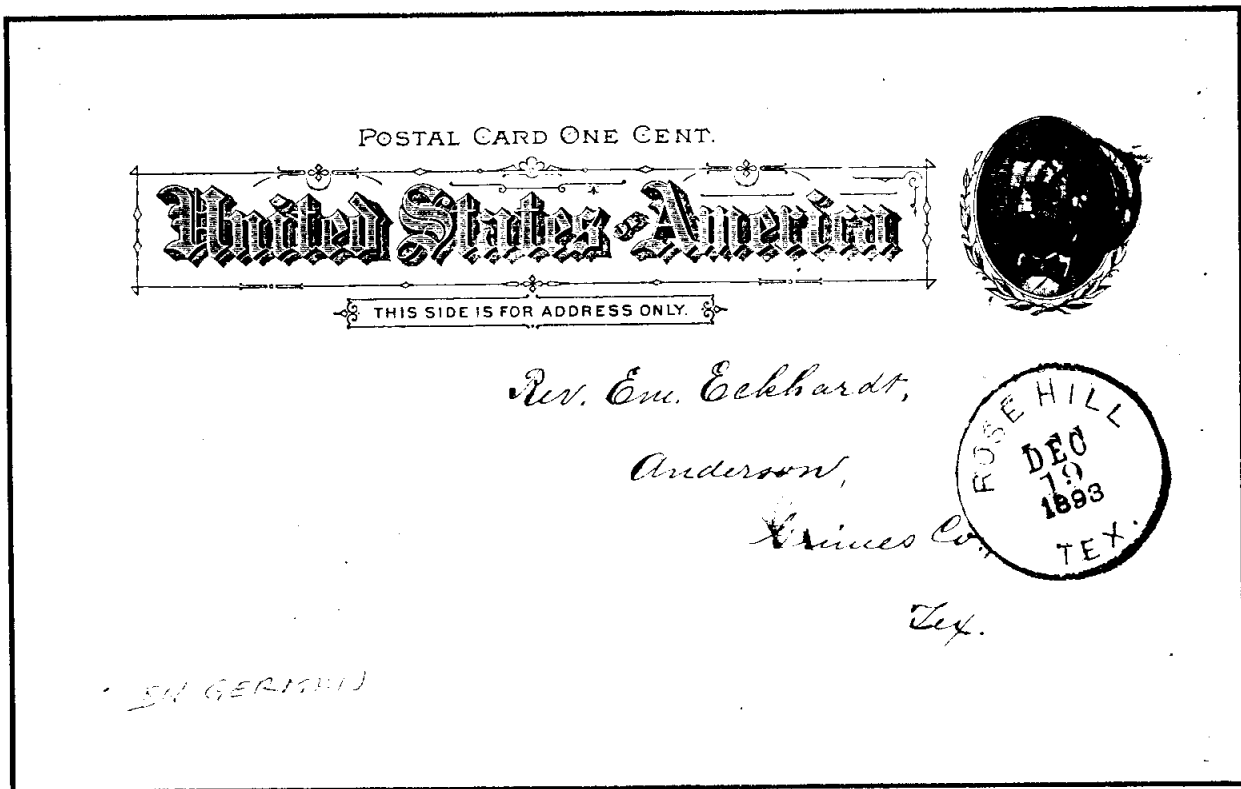 POSTAL CARD ONE CENT.
United States of America
THIS SIDE IS FOR ADDRESS ONLY.
Rev. Em. Eckhardt,
Anderson,
Grimes Co.,
Tex.
ROSE HILL
DEC
19
1893
TEX.
IN GERMAN